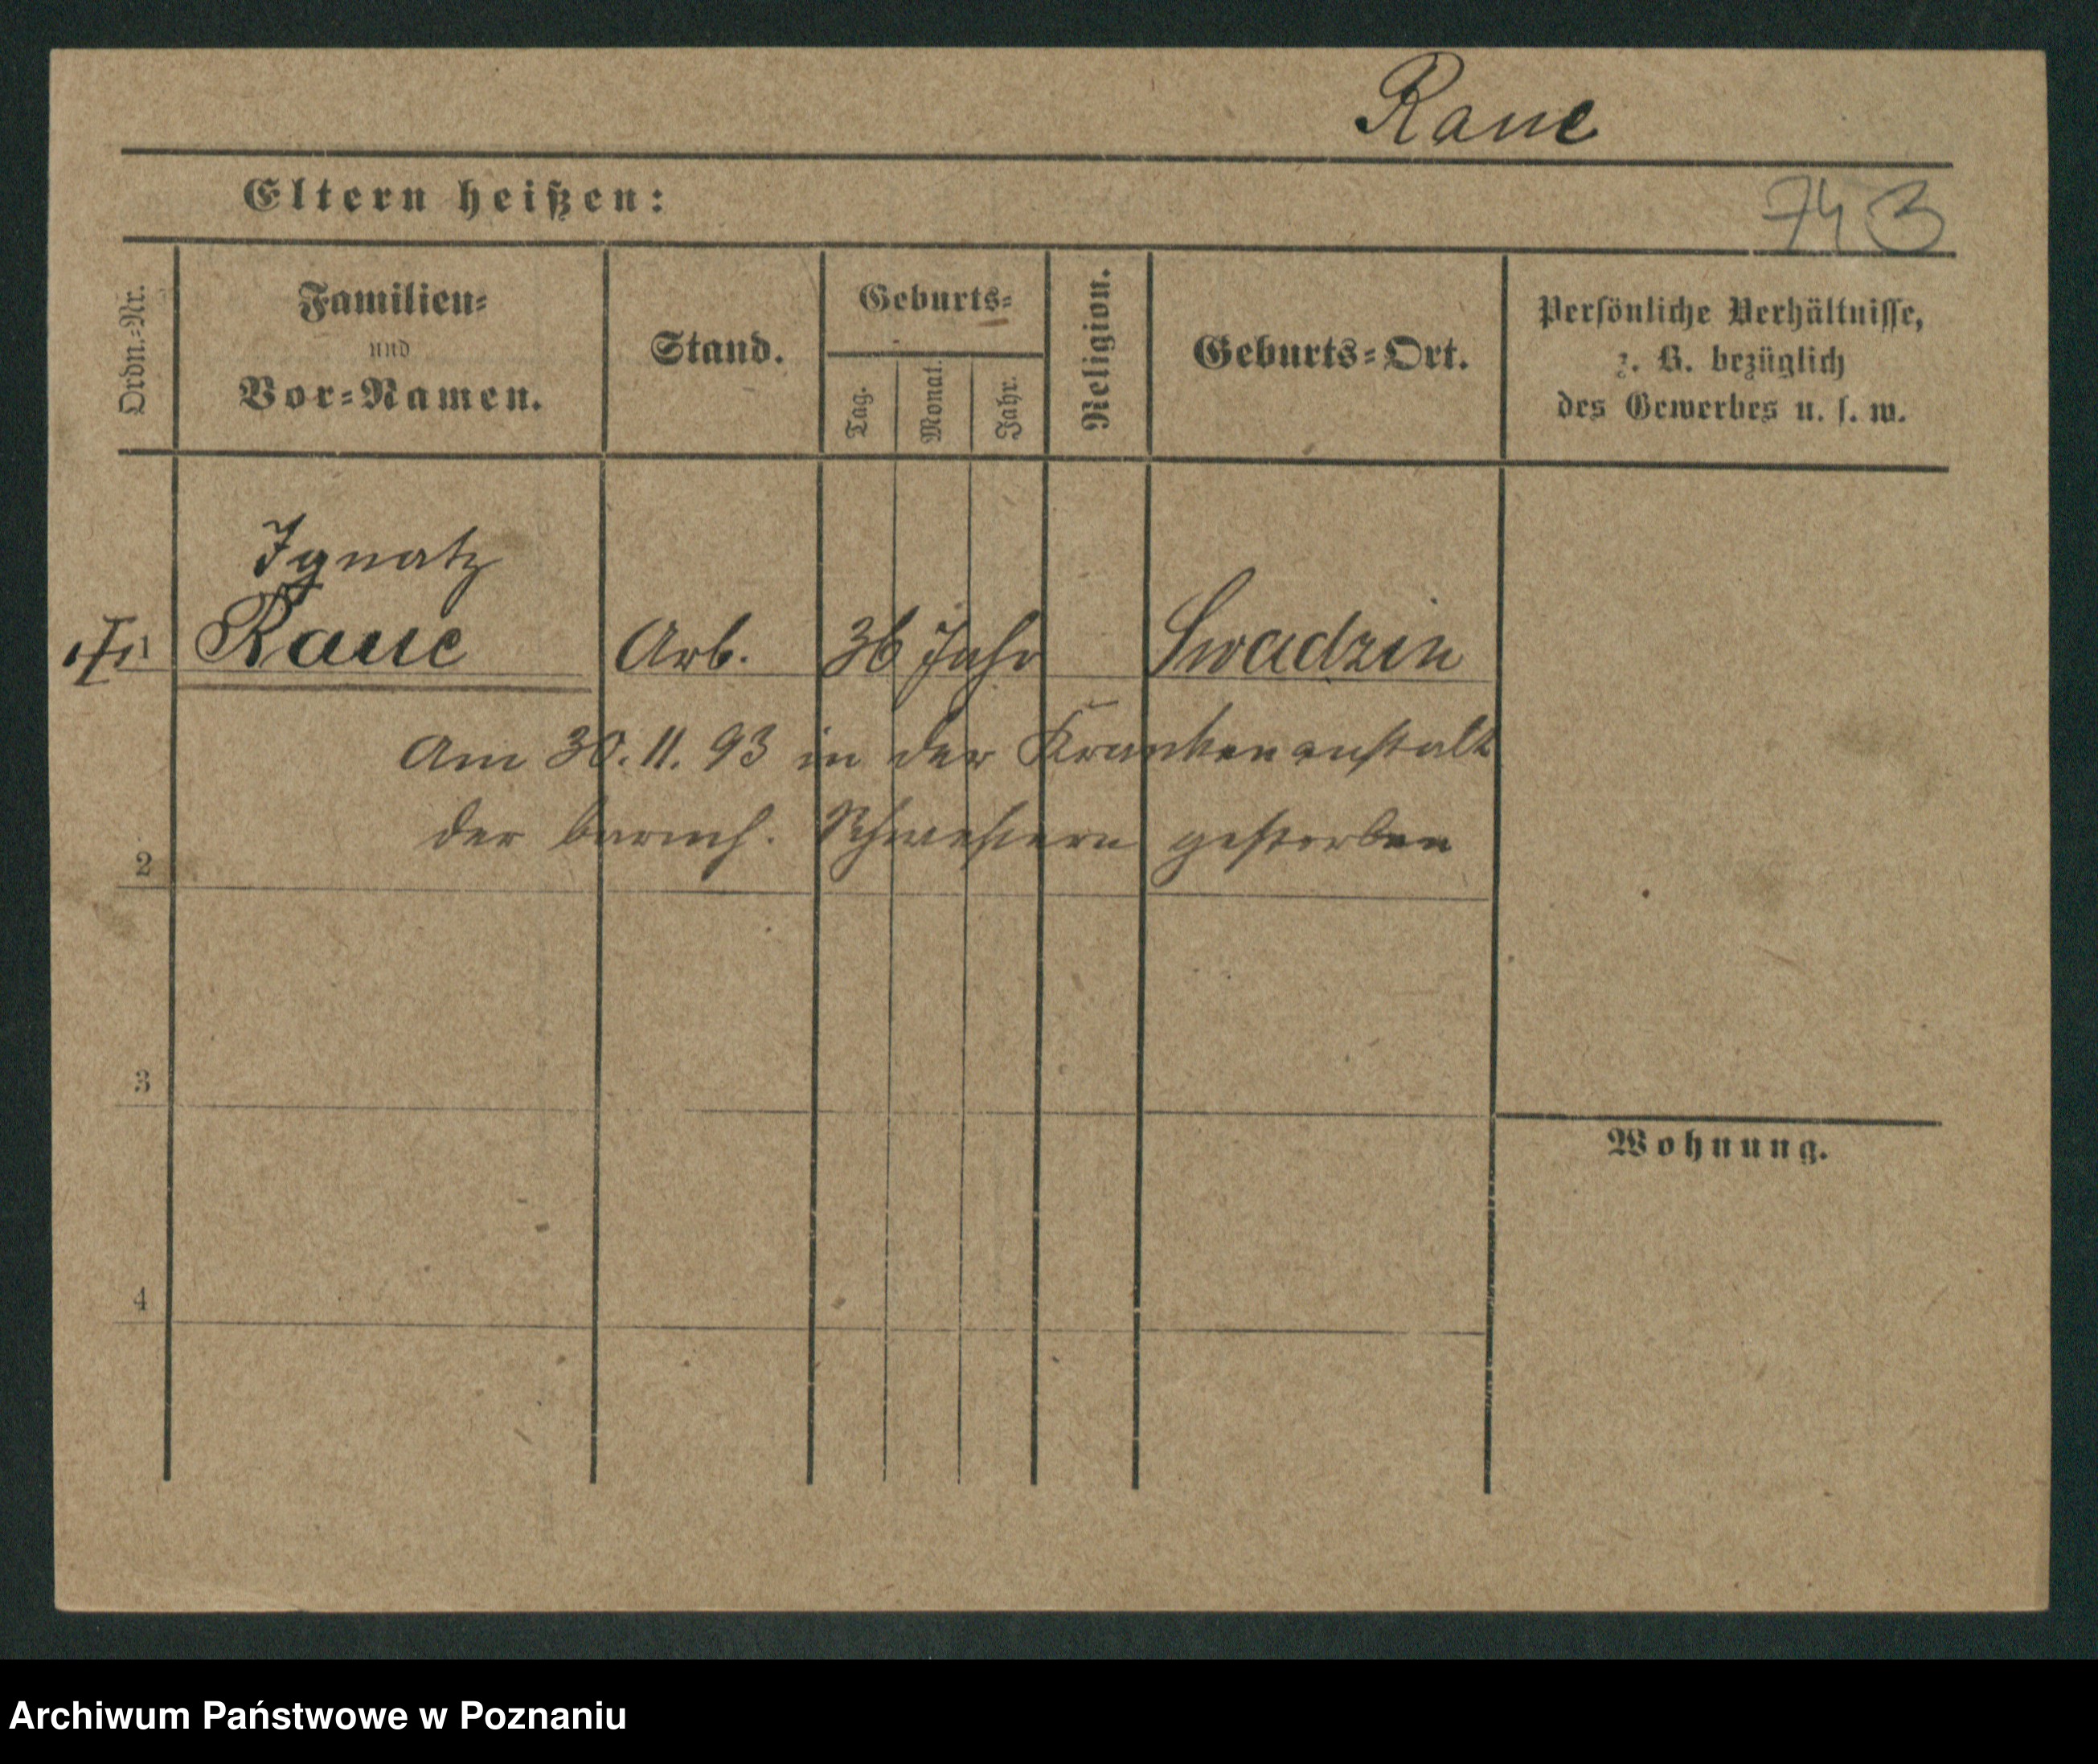 Raue
Eltern heißen:
743
Ordn.-Nr.
Familien-
und
Vor-Namen.
Stand.
Geburts-
Tag.
Monat.
Jahr.
Religion.
Geburts-Ort.
Persönliche Verhältnisse,
z. B. bezüglich
des Gewerbes u. s. w.
Ignatz
1 Raue Arb. 36 Jahr Swadzin
Am 30.11.93 in der Krankenanstalt
der barmh. Schwestern gestorben
2
3
Wohnung.
4
Archiwum Państwowe w Poznaniu